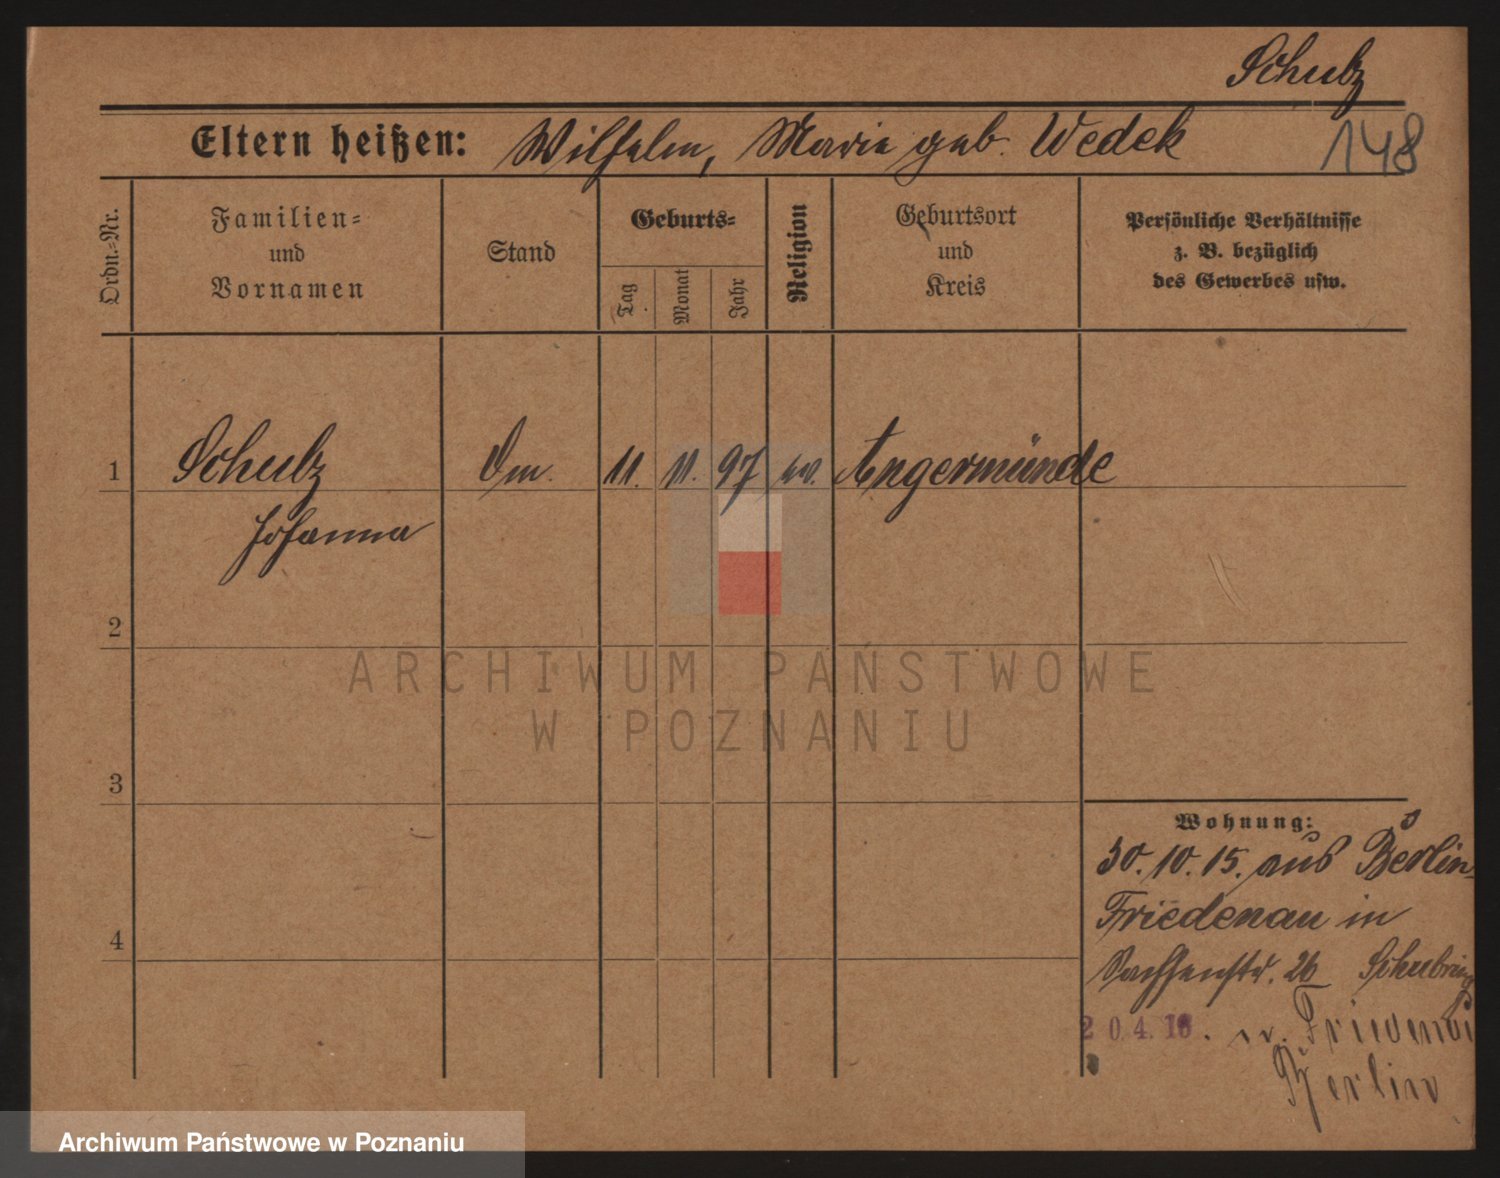 Schulz
Eltern heißen: Wilhelm, Marie geb. Wedek
148
Ordn.-Nr.
Familien-
und
Vornamen
Stand
Geburts-
Tag
Monat
Jahr
Religion
Geburtsort
und
Kreis
Persönliche Verhältnisse
z. B. bezüglich
des Gewerbes usw.
1 Schulz 11. 11. 97 Angermünde
Johanna
2
3
4
Wohnung:
30. 10. 15. aus Berlin-
Friedenau in
Sachsenstr. 26
20.4.16. n.
Berlin
ARCHIWUM PAŃSTWOWE
W POZNANIU
Archiwum Państwowe w Poznaniu